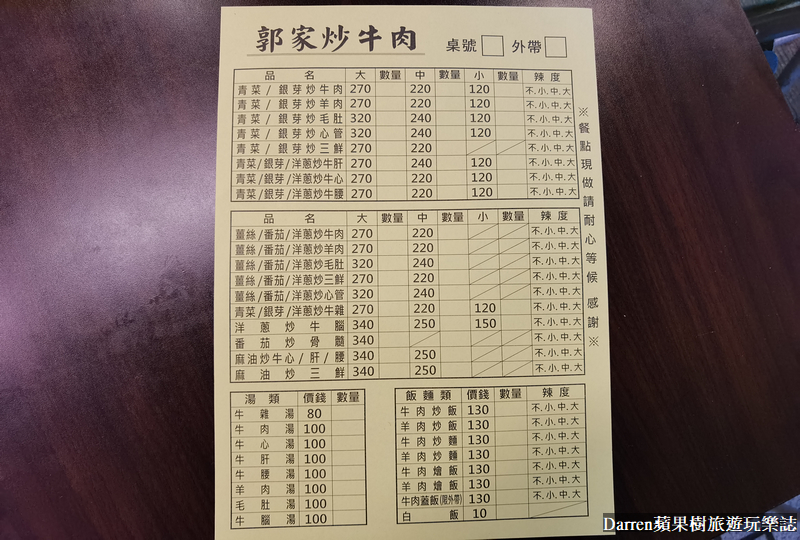 郭家炒牛肉 桌號 外帶
品名 大 數量 中 數量 小 數量 辣度
青菜/銀芽炒牛肉 270 220 120 不.小.中.大
青菜/銀芽炒羊肉 270 220 120 不.小.中.大
青菜/銀芽炒毛肚 320 240 120 不.小.中.大
青菜/銀芽炒心管 320 240 120 不.小.中.大
青菜/銀芽炒三鮮 270 220 不.小.中.大
青菜/銀芽/洋蔥炒牛肝 270 240 120 不.小.中.大
青菜/銀芽/洋蔥炒牛心 270 220 120 不.小.中.大
青菜/銀芽/洋蔥炒牛腰 270 220 120 不.小.中.大
品名 大 數量 中 數量 小 數量 辣度
薑絲/番茄/洋蔥炒牛肉 270 220 不.小.中.大
薑絲/番茄/洋蔥炒羊肉 270 220 不.小.中.大
薑絲/番茄/洋蔥炒毛肚 320 240 不.小.中.大
薑絲/番茄/洋蔥炒三鮮 270 220 不.小.中.大
薑絲/番茄/洋蔥炒心管 320 240 不.小.中.大
青菜/銀芽/洋蔥炒牛雜 270 220 120 不.小.中.大
洋蔥炒牛腦 340 250 150 不.小.中.大
番茄炒骨髓 340 不.小.中.大
麻油炒牛心/肝/腰 340 250 不.小.中.大
麻油炒三鮮 340 250 不.小.中.大
※餐點現做請耐心等候 感謝※
湯類 價錢 數量
牛雜湯 80
牛肉湯 100
牛心湯 100
牛肝湯 100
牛腰湯 100
羊肉湯 100
毛肚湯 100
牛腦湯 100
飯麵類 價錢 數量 辣度
牛肉炒飯 130 不.小.中.大
羊肉炒飯 130 不.小.中.大
牛肉炒麵 130 不.小.中.大
羊肉炒麵 130 不.小.中.大
牛肉燴飯 130 不.小.中.大
羊肉燴飯 130 不.小.中.大
牛肉蓋飯(限外帶) 130 不.小.中.大
白飯 10
Darren蘋果樹旅遊玩樂誌